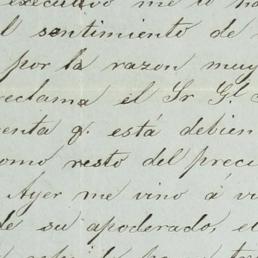 executivo me lo ha
l sentimiento de
por la razon muy
reclama el Sr Gl.
enta q. está debien
omo resto del preci
Ayer me vino á v
de su apoderado, e